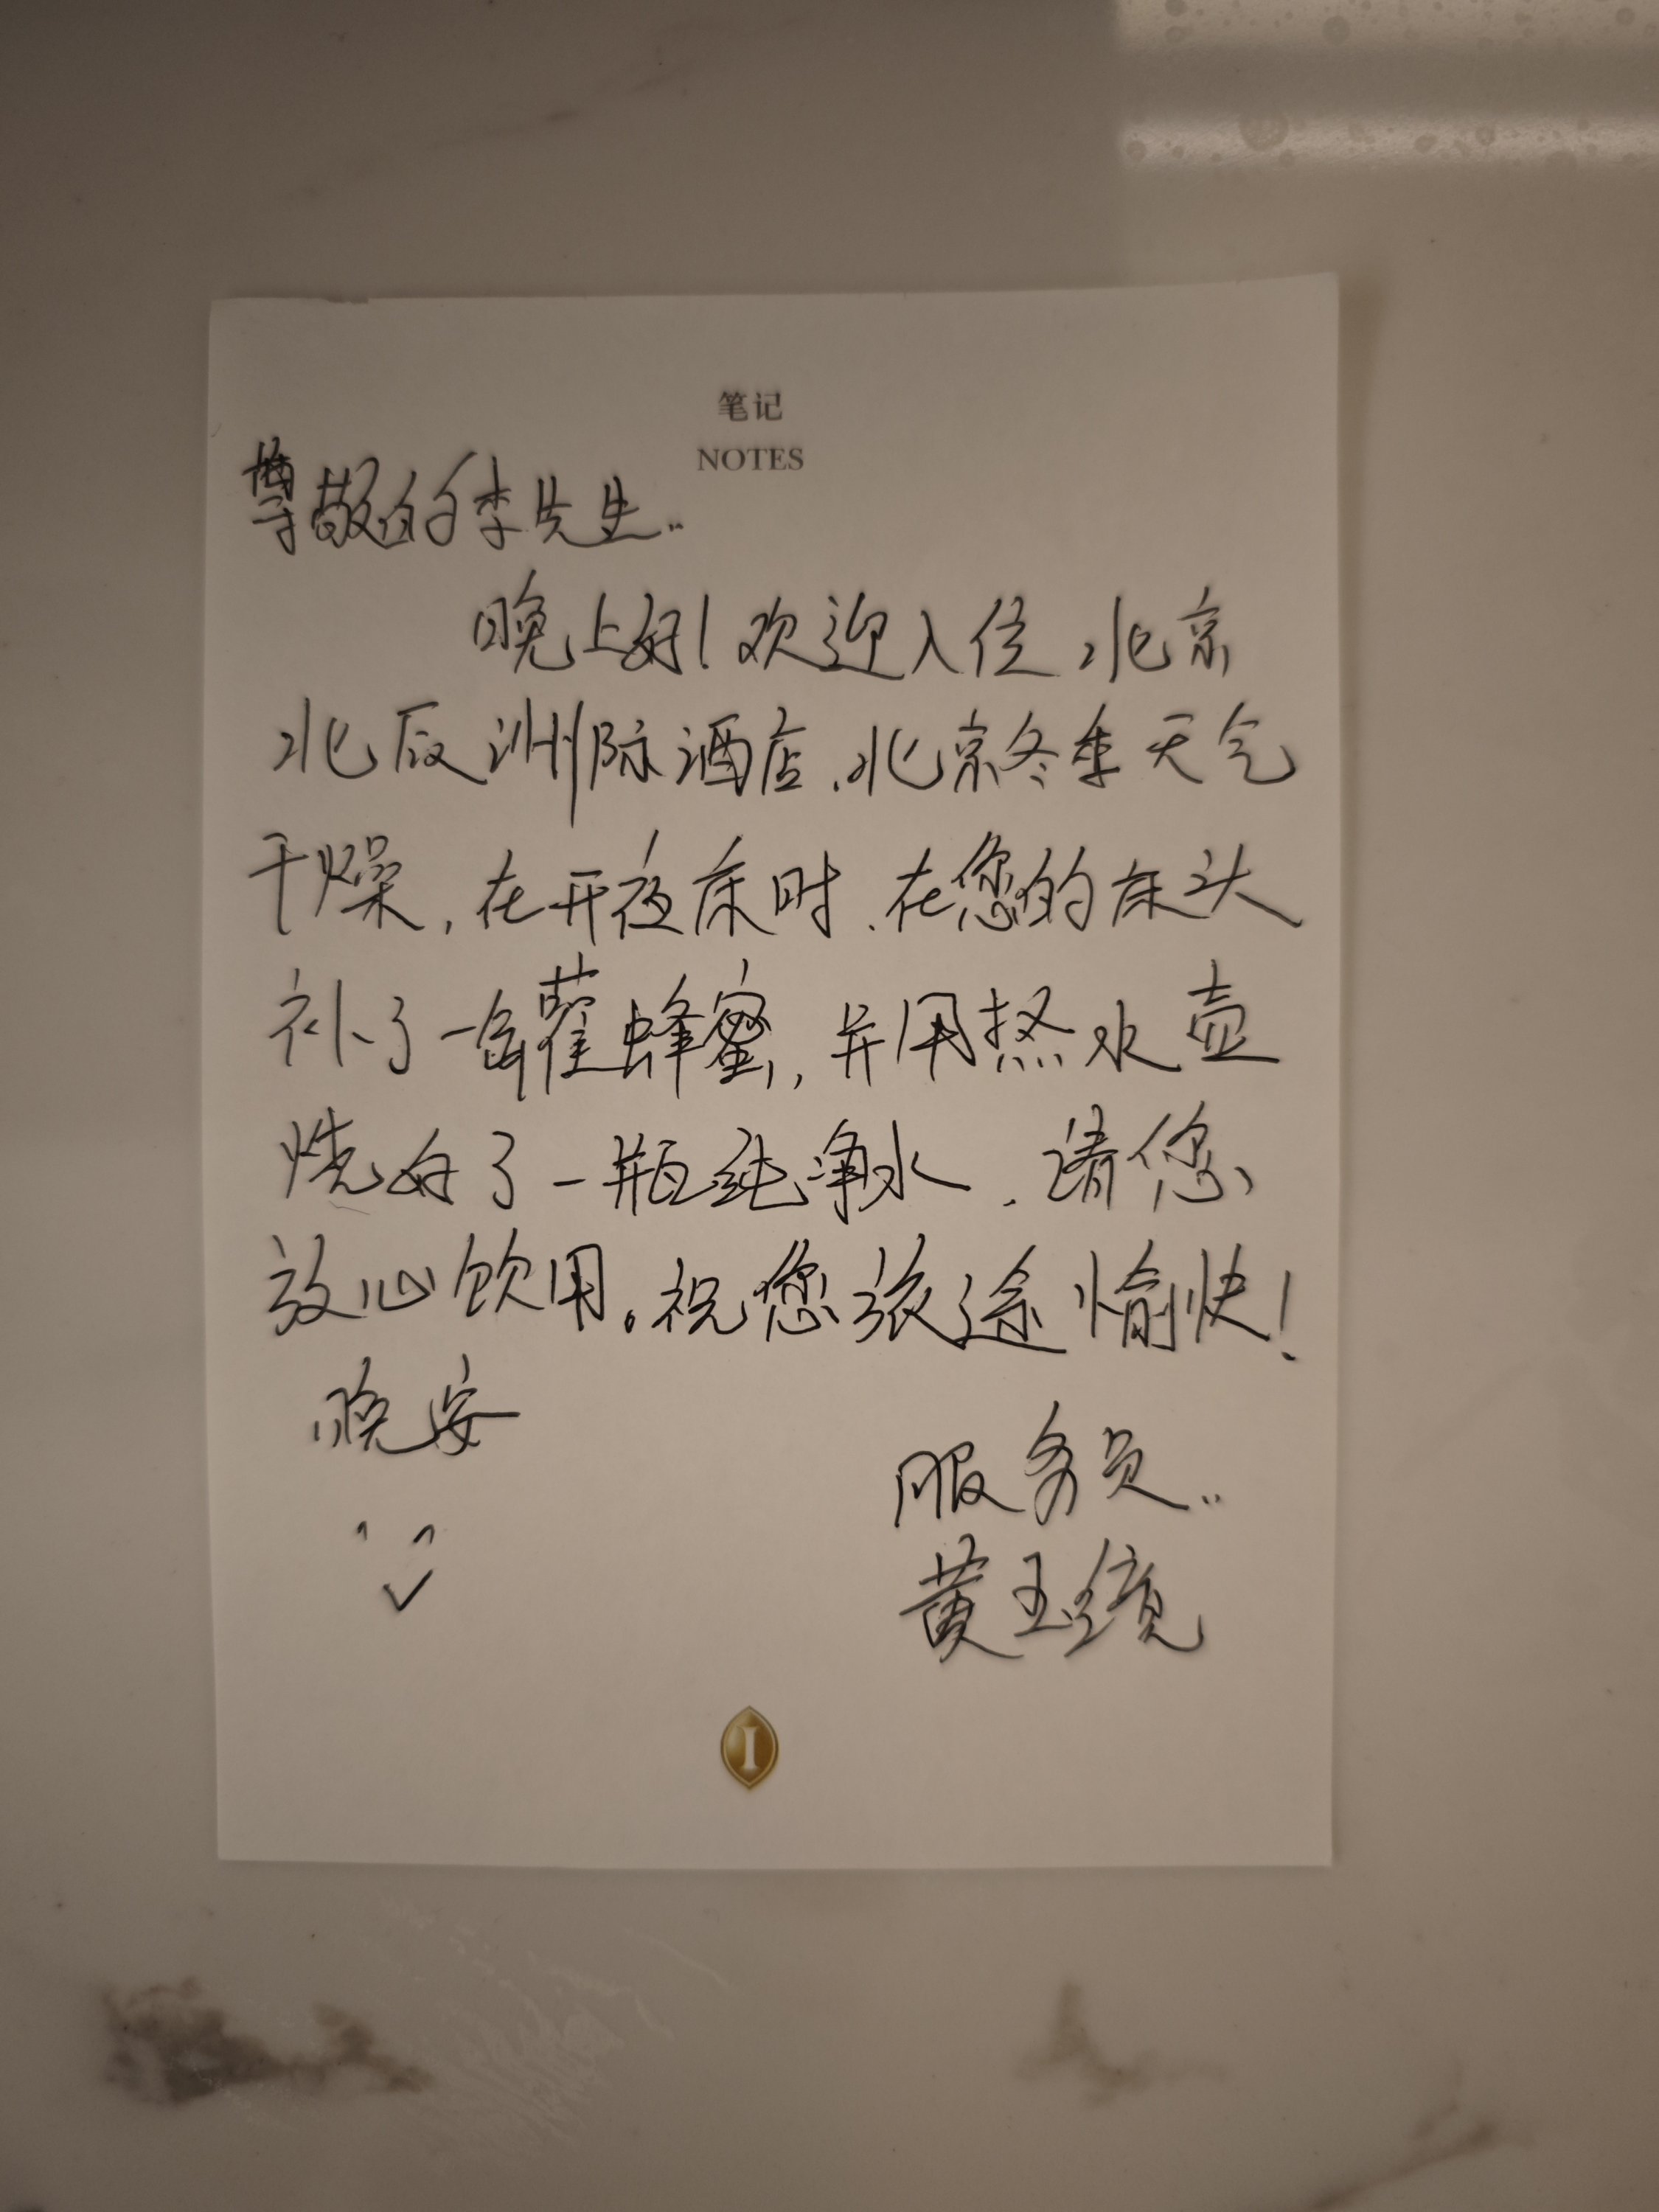 笔记
NOTES
尊敬的李先生:
晚上好!欢迎入住北京
北辰洲际酒店,北京冬季天气
干燥,在开夜床时,在您的床头
补了一罐蜂蜜,并用热水壶
烧好了一瓶纯净水,请您
放心饮用。祝您旅途愉快!
晚安
服务员:
黄玉
I